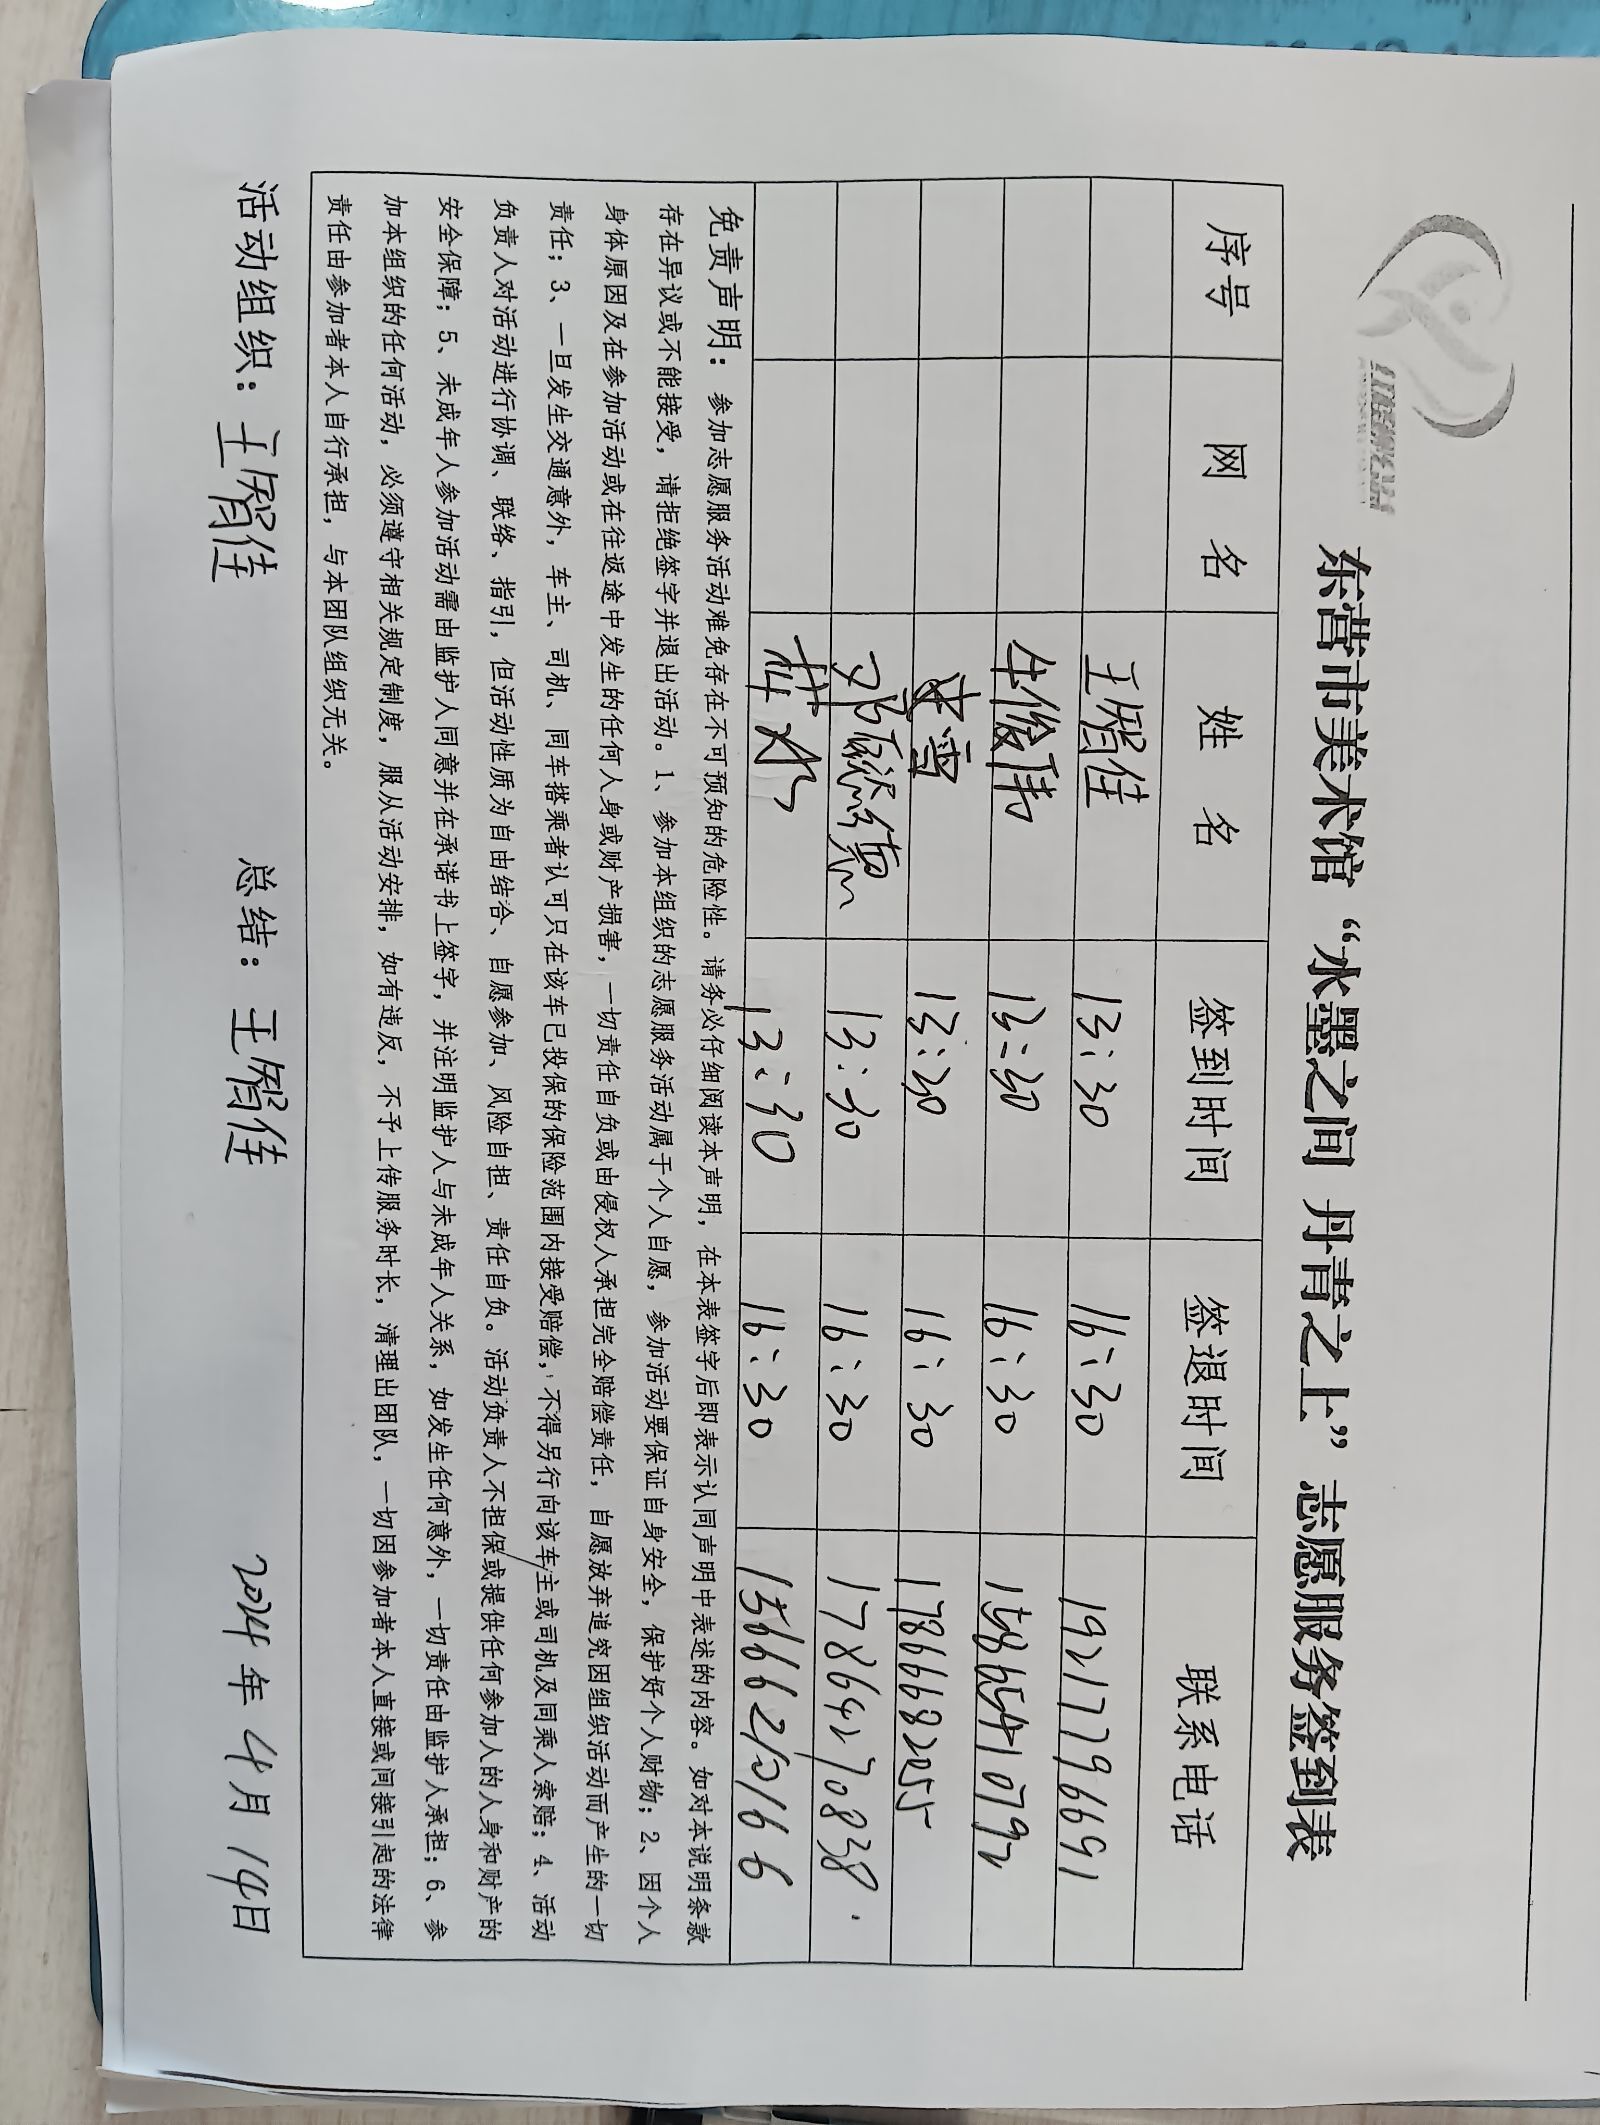 东营市美术馆“水墨之间 丹青之上”志愿服务签到表
序号 网名 姓名 签到时间 签退时间 联系电话
王智佳 13:30 16:30 19217796691
牛俊伟 13:30 16:30
13:30 16:30 17866682055
邓 13:30 16:30 17864270838.
13:30 16:30 15666210166
免责声明：参加志愿服务活动难免存在不可预知的危险性。请务必仔细阅读本声明，在本表签字后即表示认同声明中表述的内容。如对本说明条款
存在异议或不能接受，请拒绝签字并退出活动。1、参加本组织的志愿服务活动属于个人自愿，参加活动要保证自身安全，保护好个人财物；2、因个人
身体原因及在参加活动或在往返途中发生的任何人身或财产损害，一切责任自负或由侵权人承担完全赔偿责任，自愿放弃追究因组织活动而产生的一切
责任；3、一旦发生交通意外，车主、司机、同车搭乘者认可只在该车已投保的保险范围内接受赔偿，不得另行向该车主或司机及同乘人索赔；4、活动
负责人对活动进行协调、联络、指引，但活动性质为自由结洽、自愿参加、风险自担、责任自负。活动负责人不担保或提供任何参加人的人身和财产的
安全保障；5、未成年人参加活动需由监护人同意并在承诺书上签字，并注明监护人与未成年人关系，如发生任何意外，一切责任由监护人承担；6、参
加本组织的任何活动，必须遵守相关规定制度，服从活动安排，如有违反，不予上传服务时长，清理出团队，一切因参加者本人直接或间接引起的法律
责任由参加者本人自行承担，与本团队组织无关。
活动组织：王智佳 总结：王智佳 2024年4月14日